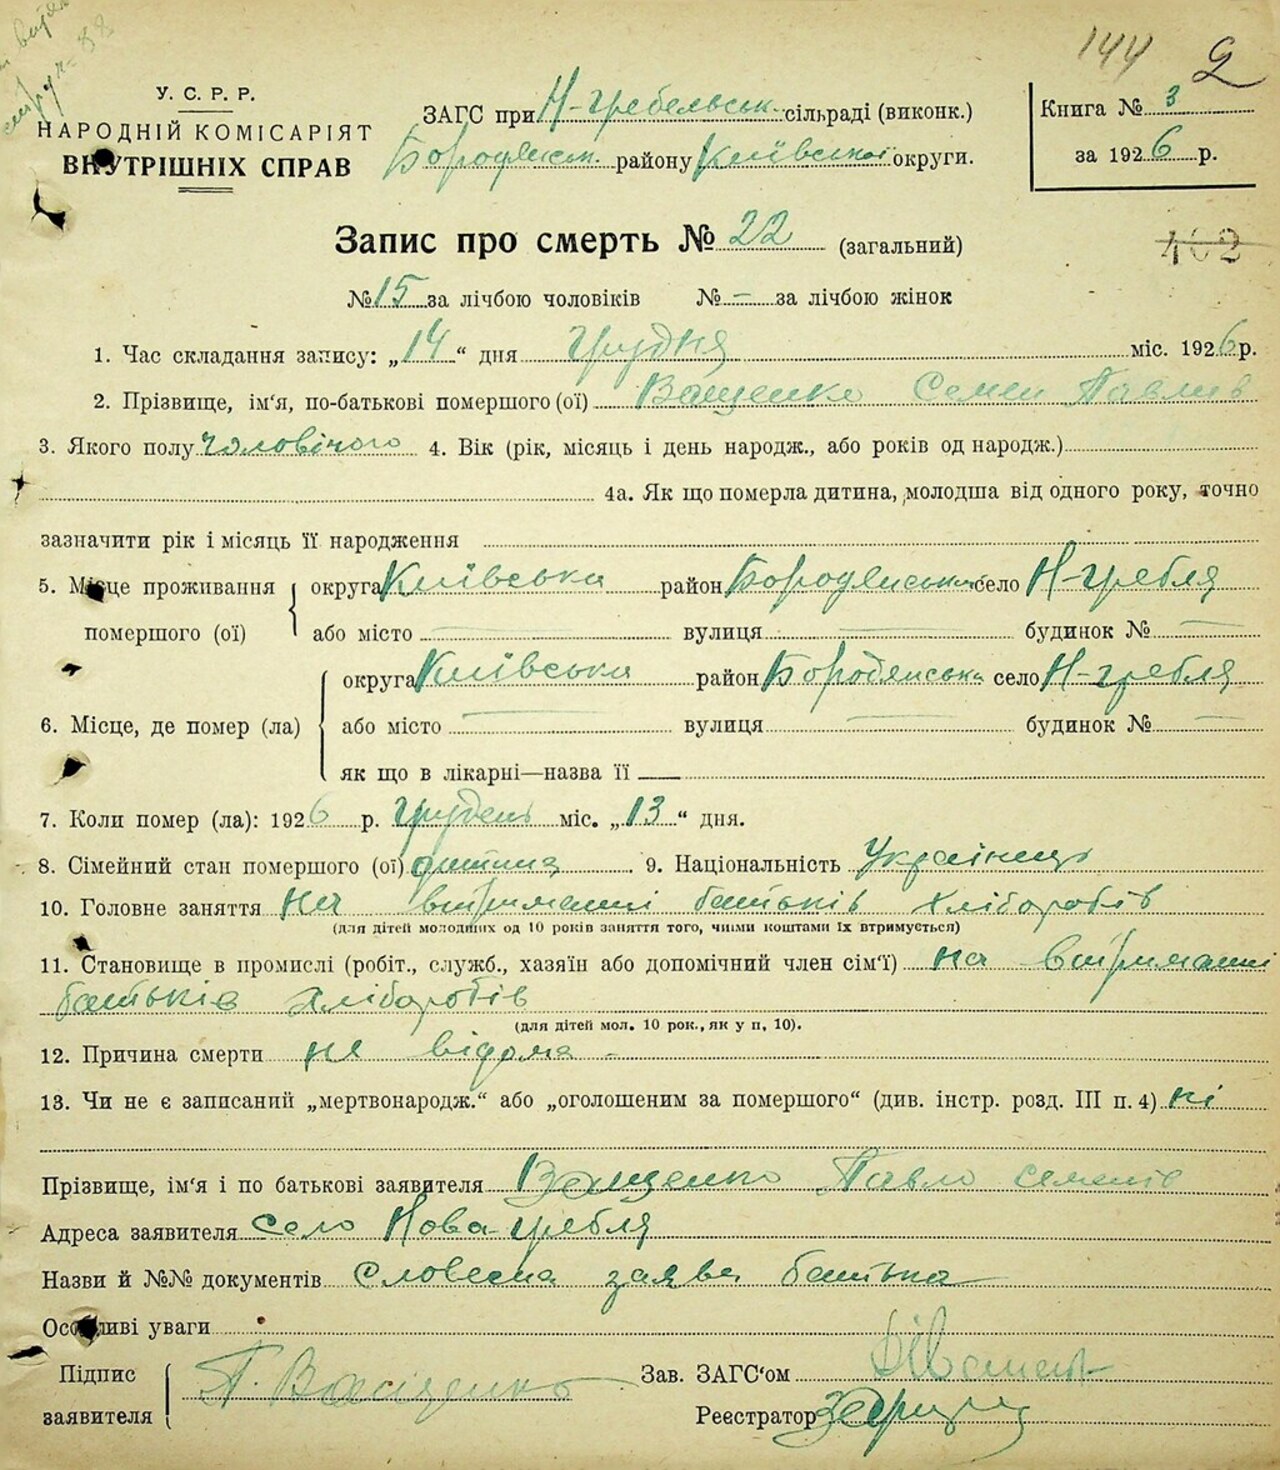 144 2
У. С. Р. Р.
НАРОДНІЙ КОМІСАРІЯТ
ВНУТРІШНІХ СПРАВ
ЗАГС при Н-Гребельськ сільраді (виконк.)
Бородянськ. району Київської округи.
Книга № 3
за 1926 р.
Запис про смерть № 22 (загальний)
402
№ 15 за лічбою чоловіків № – за лічбою жінок
1. Час складання запису: „14“ дня грудня міс. 1926 р.
2. Прізвище, ім‘я, по-батькові помершого (ої) Ващенко Семен Павлив
3. Якого полу чоловічого 4. Вік (рік, місяць і день народж., або років од народж.)
4а. Як що померла дитина, молодша від одного року, точно
зазначити рік і місяць її народження
5. Місце проживання округа Київська район Бородянська село Н-Гребля
помершого (ої) або місто — вулиця — будинок № —
округа Київська район Бородянська село Н-Гребля
6. Місце, де помер (ла) або місто — вулиця — будинок № —
як що в лікарні—назва її —
7. Коли помер (ла): 1926 р. грудень міс. „13“ дня.
8. Сімейний стан помершого (ої) дитина 9. Національність Українець
10. Головне заняття на втриманні батьків хліборобів
(для дітей молодших од 10 років заняття того, чиїми коштами їх втримується)
11. Становище в промислі (робіт., служб., хазяїн або допомічний член сім‘ї) на втриманні
батьків хліборобів
(для дітей мол. 10 рок., як у п, 10).
12. Причина смерти не відома -
13. Чи не є записаний „мертвонародж.“ або „оголошеним за помершого“ (див. інстр. розд. III п. 4) ні
Прізвище, ім‘я і по батькові заявителя Ващенко Павло Семенів
Адреса заявителя село Нова-Гребля
Назви й №№ документів Словесна заява батька
Особливі уваги
Підпис
заявителя П. Ващенко
Зав. ЗАГС‘ом
Реєстратор